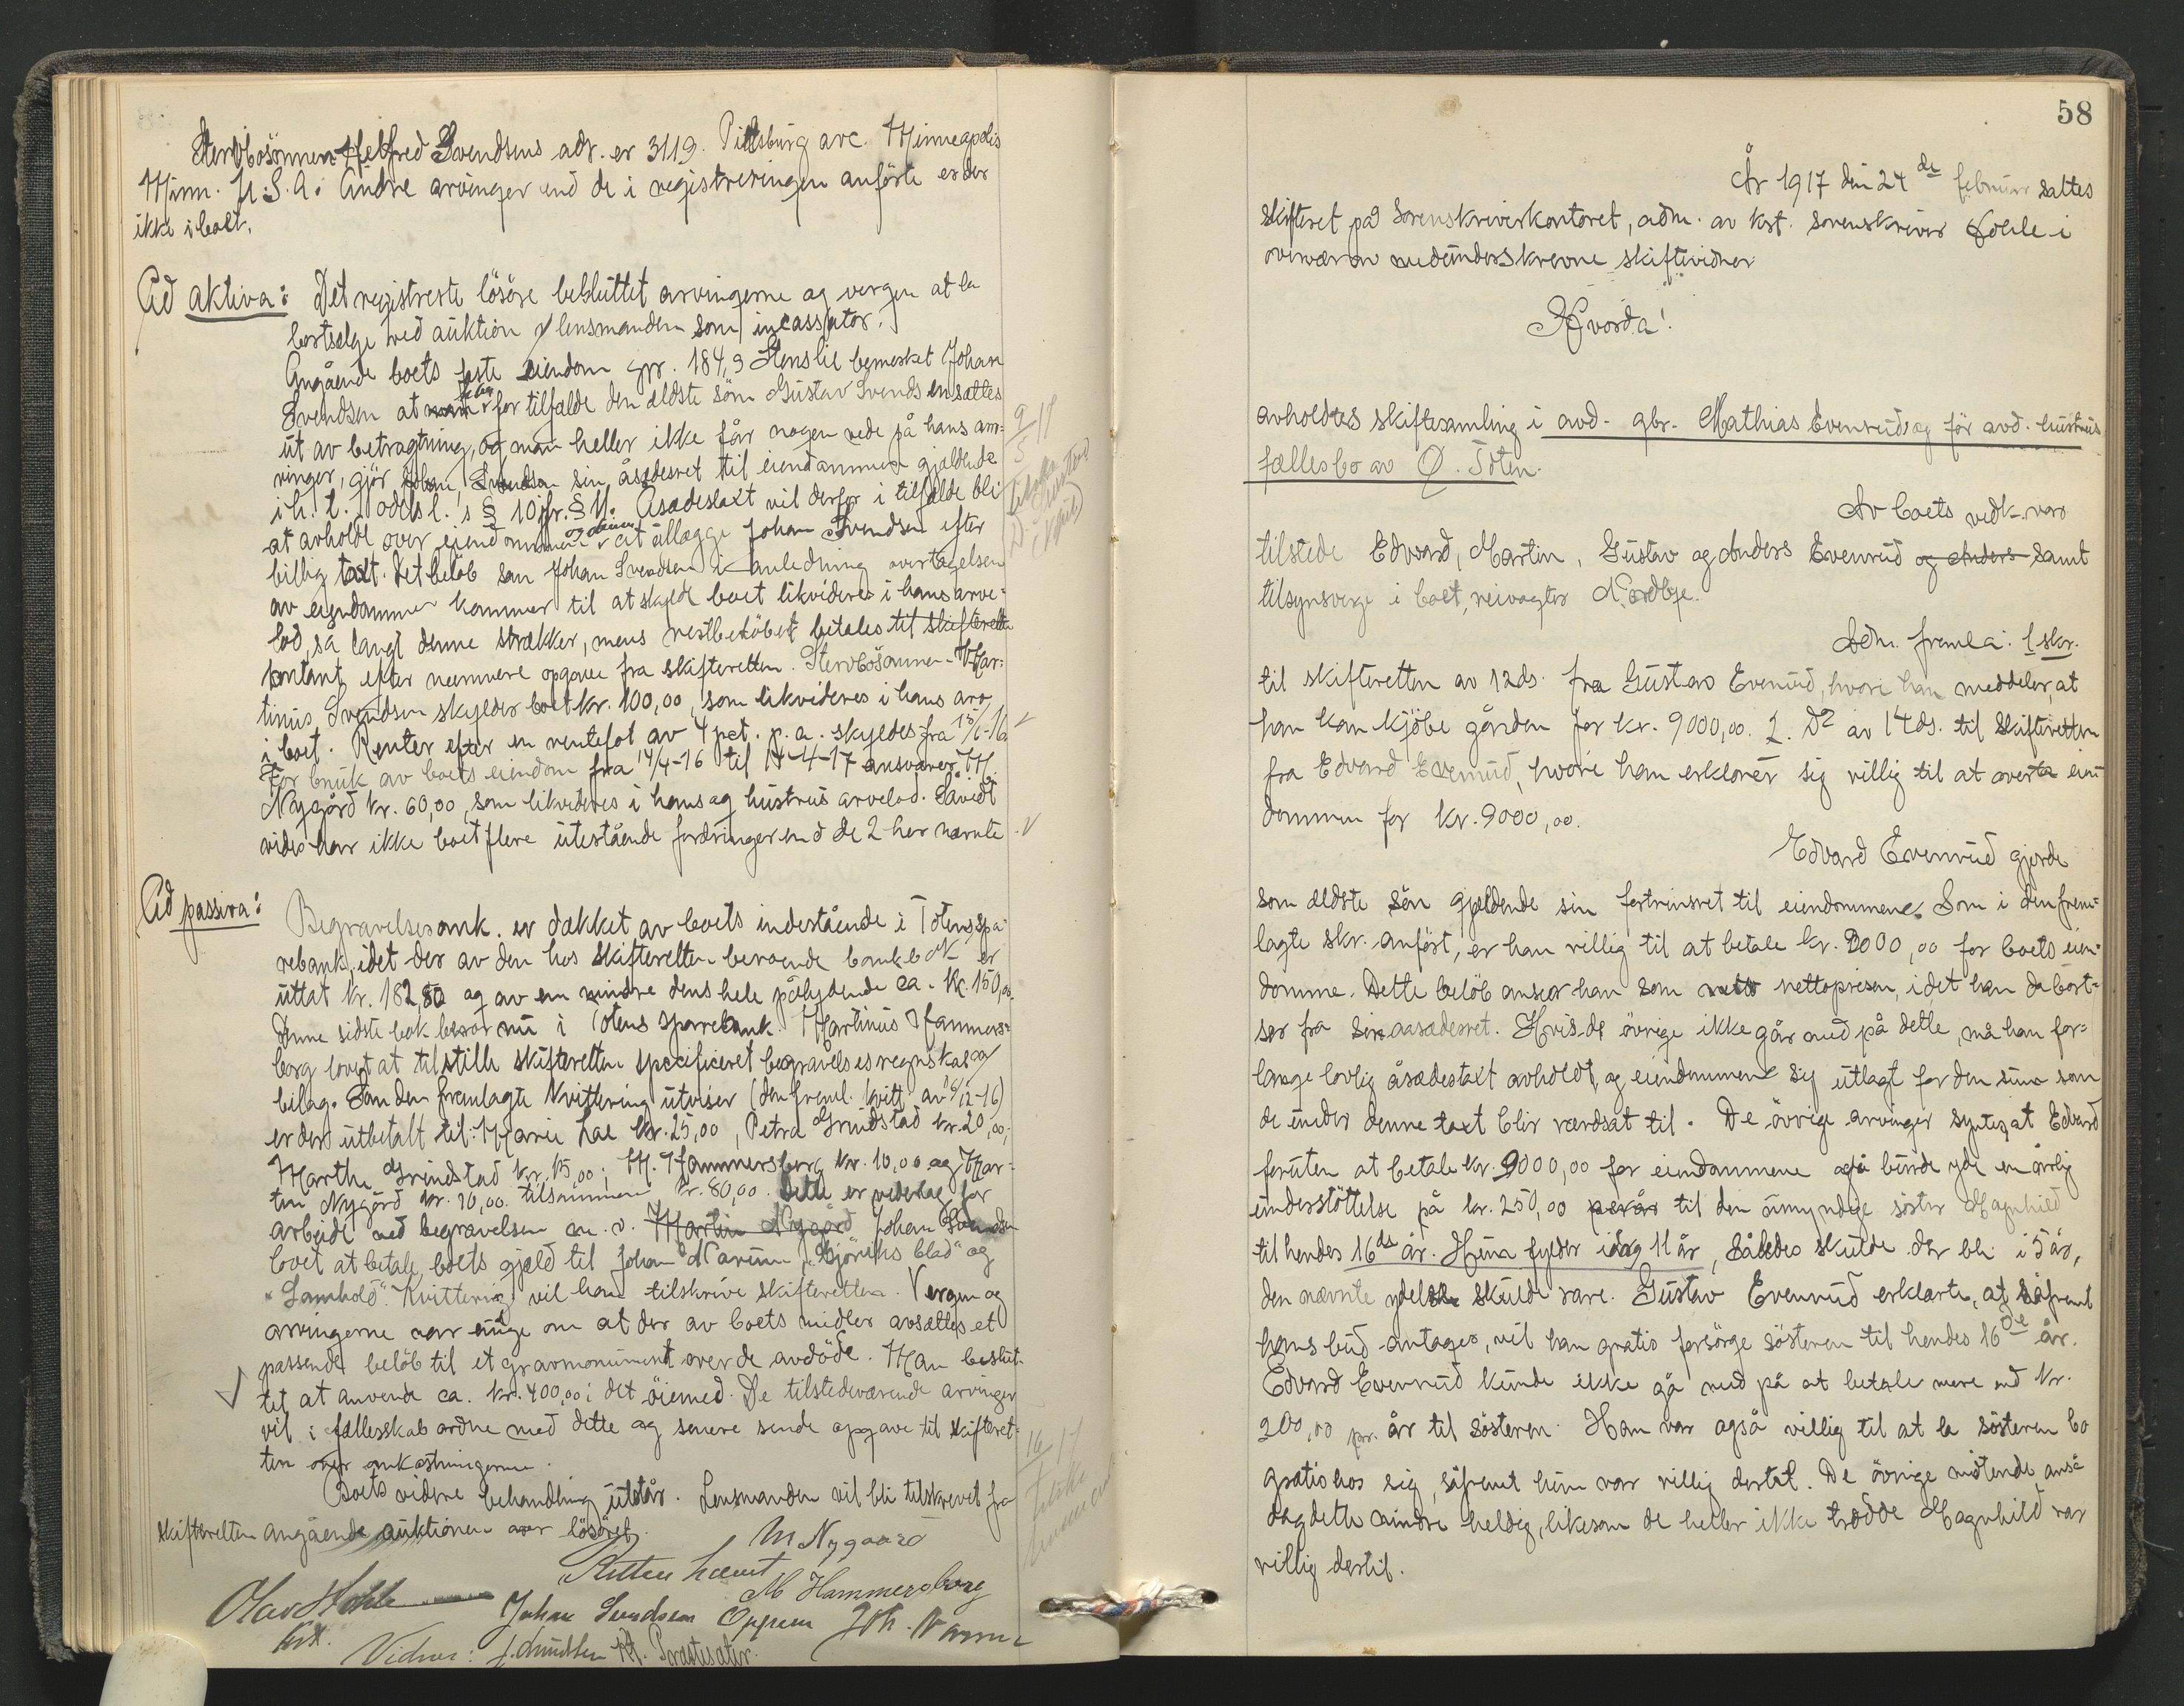 Stervbosönnen Helfred Svendsens adr. er 3119. Pittsburg ave. Minneapolis
Minn. U.S.A. Andre arvinger end de i registreringen anförte er der
ikke i boet.
Ad aktiva: Det registrerte lösöre besluttet arvingerne og vergen at la
bortsælge ved auktion lensmanden som incassator.
Angående boets faste eiendom gnr. 184,9 Stenslie bemerket Johan
Svendsen at for tilfælde den ældste sön Gustav Svendsen sættes
ut av betragtning, og man heller ikke får nogen rede på hans arv=
vinger, gjör Johan Svendsen sin åsædesret til eiendommen gjældende
i h. t. odels l.'s § 10 jfr. § 11. Åsædestakt vil derfor i tilfælde bli
at avholde over eiendommen at utlægge Johan Svendsen efter
billig taxt. Det belöb som Johan Svendsen i anledning overtagelsen
av eiendommen kommer til at skylde boet likvideres i hans arve=
lod, så langt denne strækker, mens restbelöbet betales til skifteretten
kontant efter nærmere opgave fra skifteretten. Stervbosönnen Mar=
tinus Svendsen skylder boet kr. 100,00, som likvideres i hans arv
i boet. Renter efter en rentefot av 4 pct. p. a. skyldes fra
For bruk av boets eiendom fra 14/4-16 til 14-4-17 ansvarer M.
Nygård kr. 60,00, som likvideres i hans og hustrus arvelod. Såvidt
vides har ikke boet flere utestående fordringer end de 2 her nævnte
Ad passiva: Begravelsesomk. er dækket av boets indestående i Totens spa=
rebank, idet der av den hos skifteretten beroende bankbok er
uttat kr. 182,80 og av en mindre dens hele pålydende ca. kr. 150,00.
Denne sidste bok beror nu i Totens sparebank. Martinus Hammers=
borg lovet at tilstille skifteretten specificeret begravelsesregnskap og
bilag. Som den fremlagte kvittering utviser (den freml. kvitt. av 16/12-16)
er der utbetalt til: Marie Lae kr. 25,00, Petra Grindstad kr. 20,00,
Marthe Grindstad kr. 15,00; M. Hammersborg kr. 10,00 og Mar=
tin Nygård kr. 10,00. tilsammen kr. 80,00. Dette er vederlag for
arbeide ved begravelsen m. v. Martin Nygård Johan Svendsen
lovet at betale boets gjæld til Johan Narum, "Gjöviks blad" og
"Samhold". Kvittering vil han tilskrive skifteretten. Vergen og
arvingerne var enige om at der av boets midler avsættes et
passende belöb til et gravmonument over de avdöde. Man beslut=
tet at anvende ca. kr. 400,00 i det öiemed. De tilstedeværende arvinger
vil i fællesskab ordne med dette og senere sende opgave til skifteret=
ten over omkostningerne.
Boets videre behandling utstår. Lensmanden vil bli tilskrevet fra
skifteretten angående auktionen over lösöret.
M Nygaard
Retten hævet
M Hammersborg
Olav Hohle
kst.
Johan Svendsen Oppem Joh. Narum
Vidner: J. Amundsen
58
År 1917 den 24de februar sattes
skifteret på sorenskriverkontoret, adm. av kst. sorenskriver Hohle i
overvær av medunderskrevne skiftevidner
Hvorda!
avholdtes skiftesamling i avd. gbr. Mathias Evenrud og för avd. hustrus
fællesbo av Ø. Toten.
Av boets vedk. var
tilstede Edvard, Martin, Gustav og Anders Evenrud og Anders samt
tilsynsverge i boet, veivogter Nordbye.
Adm. freml a: 1 skr.
til skifteretten av 12 ds. fra Gustav Evenrud, hvori han meddeler, at
han kan kjöbe gården for kr. 9000,00. 2. Do av 14 ds. til skifteretten
fra Edvard Evenrud, hvori han erklærer sig villig til at overta eien
dommen for kr. 9000,00.
Edvard Evenrud gjorde
som ældste sön gjældende sin fortrinsret til eiendommene. Som i den frem=
lagte skr. anfört, er han villig til at betale kr. 9000,00 for boets eien=
domme. Dette belöb anser han som netto nettoprisen, idet han da bort=
ser fra sin aasædesret. Hvis de övrige ikke går med på dette, må han for=
lange lovlig åsædestakt avholdt, og eiendommene sig utlagt for den sum som
de under denne taxt blir værdsat til. De övrige arvinger syntes, at Edvard
foruten at betale kr. 9000,00 for eiendommene også burde yde en årlig
understöttelse på kr. 250,00 per år til den umyndige söster Magnhild
til hendes 16de år. Hun fylder idag 11 år, således skulde der bli i 5 år,
den nævnte ydelse skulde vare. Gustav Evenrud erklærte, at såfremt
hans bud antages, vil han gratis forsörge sösteren til hendes 16de år.
Edvard Evenrud kunde ikke gå med på at betale mere end kr.
200,00 pr. år til sösteren. Han var også villig til at la sösteren bo
gratis hos sig, såfremt hun var villig dertil. De övrige mötende anså
dog dette mindre heldig, likesom de heller ikke trodde Magnhild var
villig dertil.